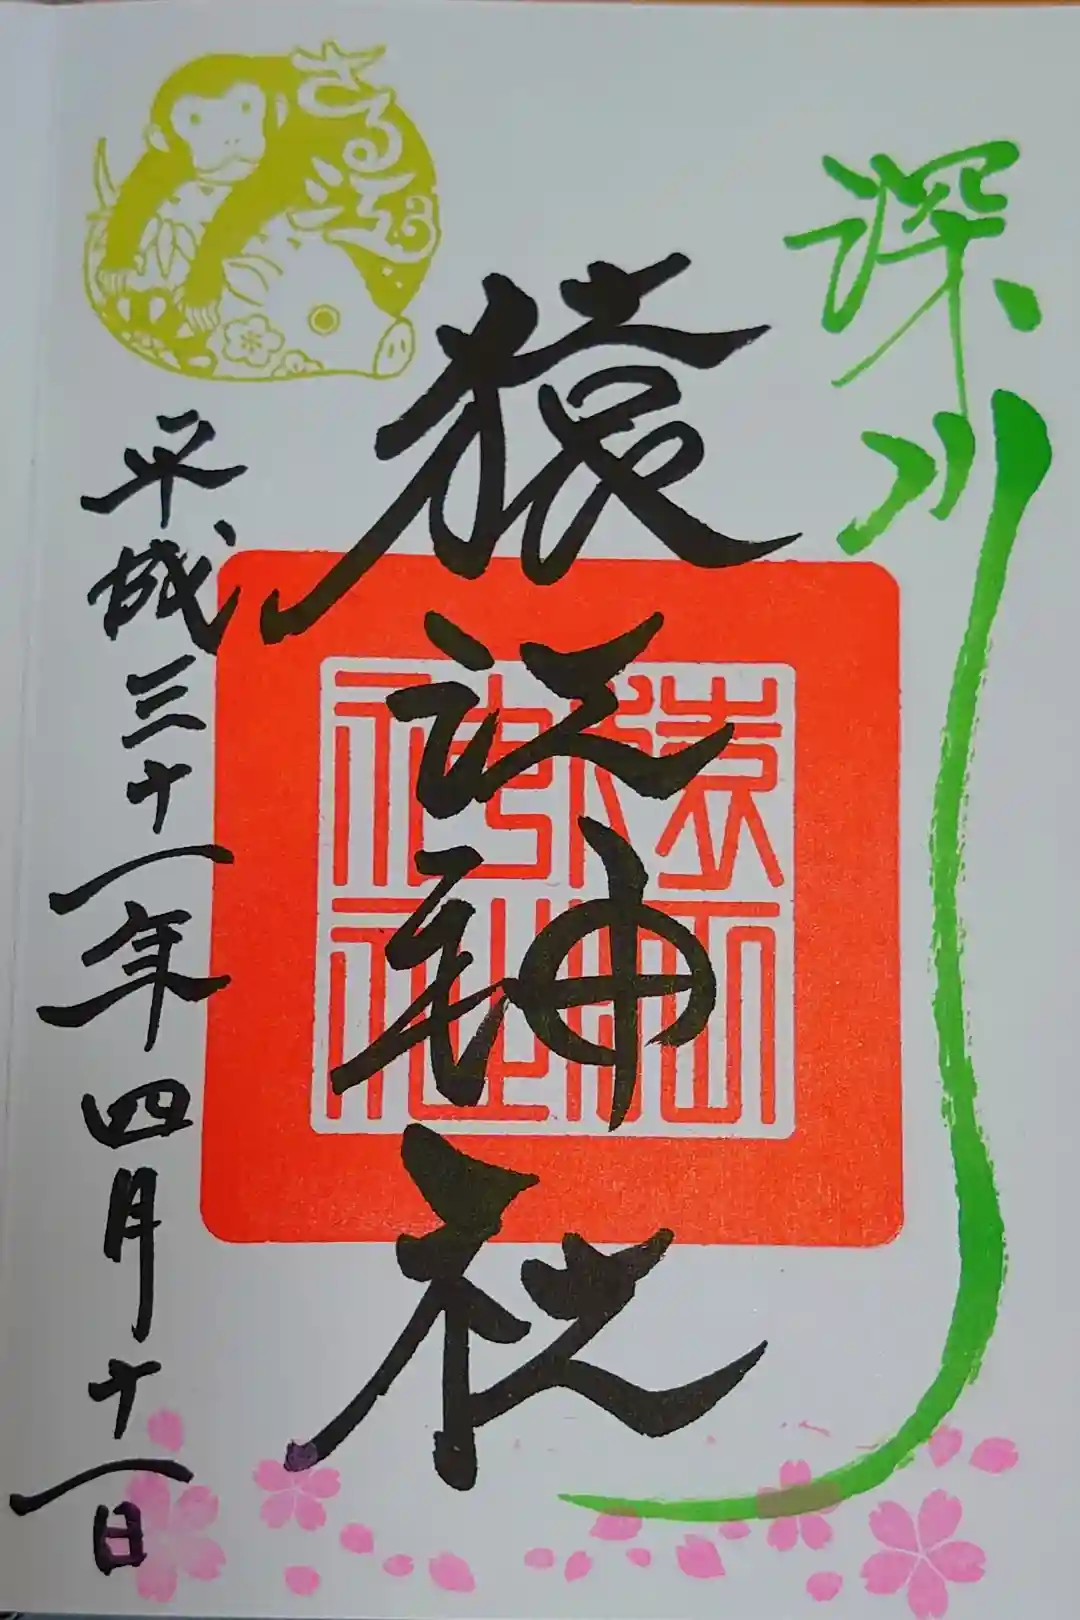 深川
猿江神社
猿江
神社
平成三十一年四月十一日
さる江